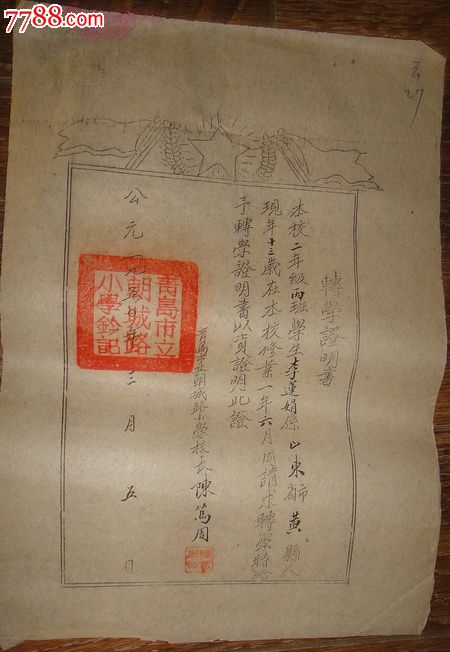 7788.com
中国收藏热线
轉學證明書
本校二年級丙班學生李蓮娟係山東省市黃縣人
現年十三歲在本校修業一年六月因請求轉學特給
予轉學證明書以資證明此證
青島市立朝城路小學校長陳篤周
公元一九五〇年三月五日
青島市立
朝城路
小學鈐記
27